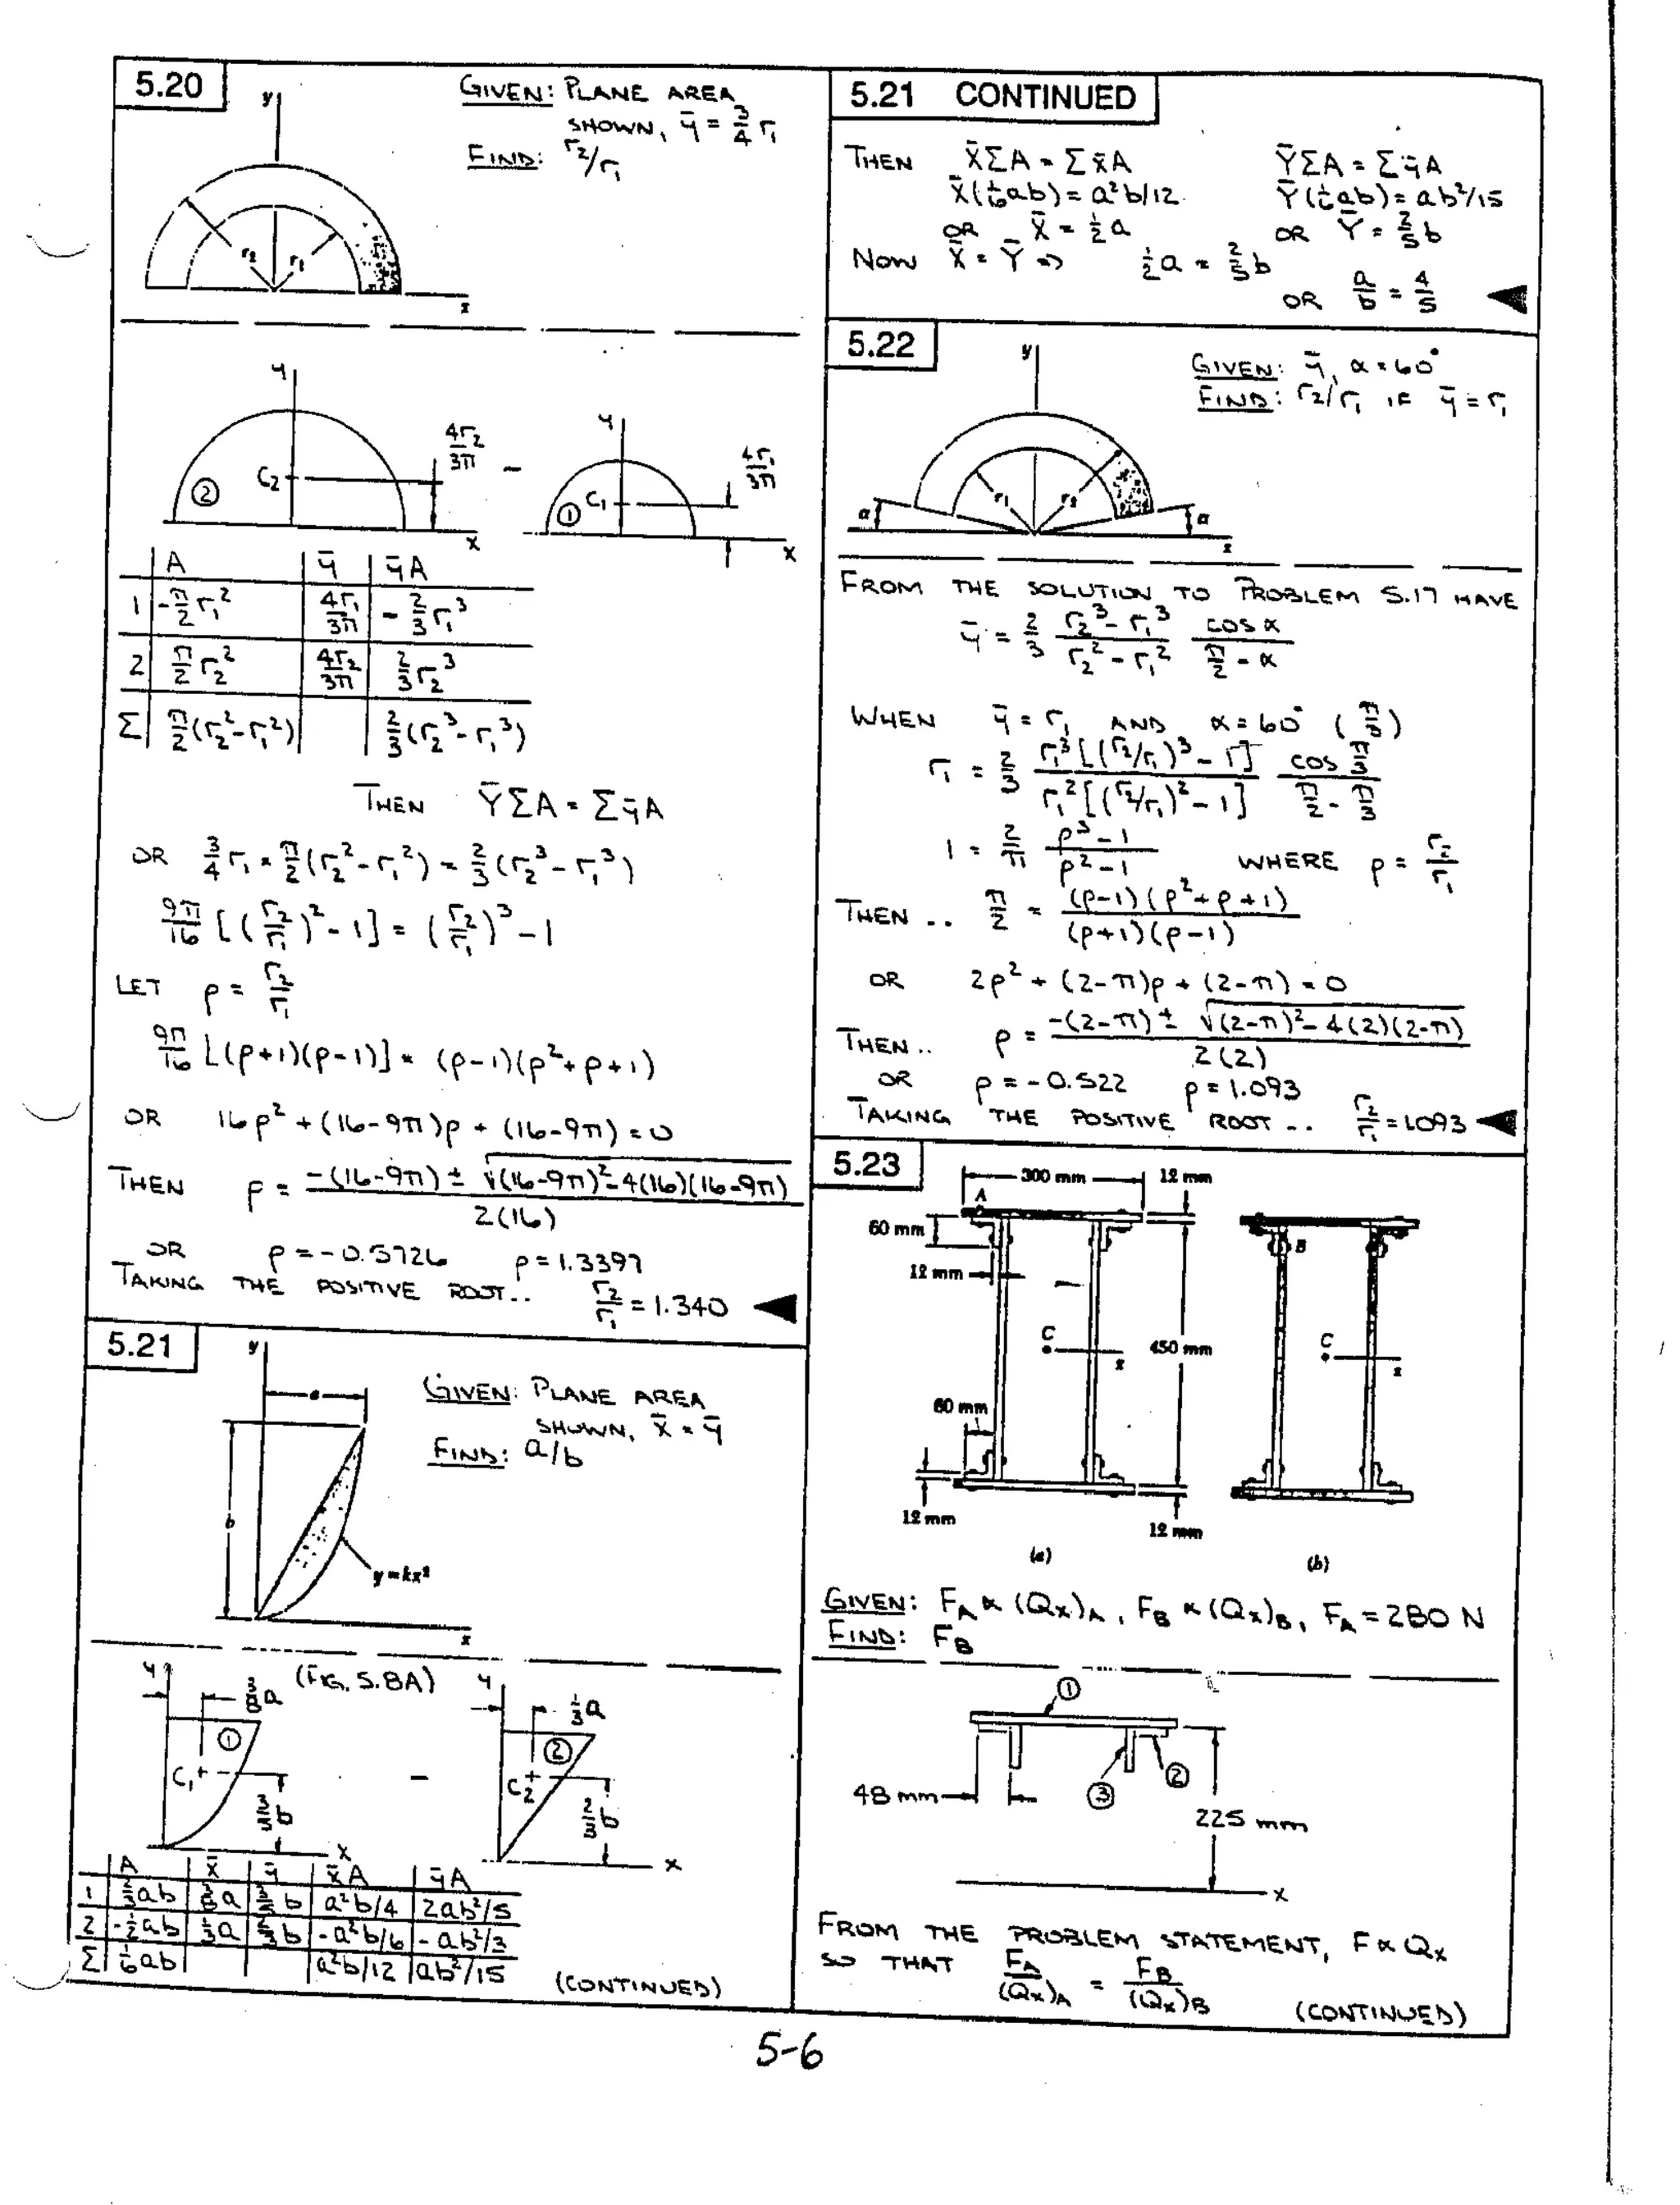 5.20
GIVEN: PLANE AREA
SHOWN, ȳ = 3/4 r₁
FIND: r₂/r₁
y
r₂ r₁
x
y
4r₂/3π
C₂
②
x
–
y
4r₁/3π
C₁
①
x
A ȳ ȳA
1 -π/2 r₁² 4r₁/3π -2/3 r₁³
2 π/2 r₂² 4r₂/3π 2/3 r₂³
Σ π/2(r₂²-r₁²) 2/3(r₂³-r₁³)
THEN ȲΣA = ΣȳA
OR 3/4 r₁ × π/2(r₂²-r₁²) = 2/3(r₂³-r₁³)
9π/16 [(r₂/r₁)²-1] = (r₂/r₁)³-1
LET ρ = r₂/r₁
9π/16 [(ρ+1)(ρ-1)] = (ρ-1)(ρ²+ρ+1)
OR 16ρ² + (16-9π)ρ + (16-9π) = 0
THEN ρ = -(16-9π) ± √((16-9π)²-4(16)(16-9π)) / 2(16)
OR ρ = -0.5726 ρ = 1.3397
TAKING THE POSITIVE ROOT.. r₂/r₁ = 1.340 ◀
5.21
GIVEN: PLANE AREA
SHOWN, x̄ = ȳ
FIND: a/b
y
a
b
y = kx²
x
(FIG. 5.8A)
y
3/8 a
①
C₁
3/5 b
x
–
y
1/3 a
②
C₂
2/3 b
x
A x̄ ȳ x̄A ȳA
1 2/3 ab 3/8 a 3/5 b a²b/4 2ab²/5
2 -1/2 ab 1/3 a 2/3 b -a²b/6 -ab²/3
Σ 1/6 ab a²b/12 ab²/15
(CONTINUED)
5.21 CONTINUED
THEN X̄ΣA = Σx̄A ȲΣA = ΣȳA
X̄(1/6 ab) = a²b/12 Ȳ(1/6 ab) = ab²/15
OR X̄ = 1/2 a OR Ȳ = 2/5 b
NOW X̄ = Ȳ ⇒ 1/2 a = 2/5 b
OR a/b = 4/5 ◀
5.22
GIVEN: ȳ, α = 60°
FIND: r₂/r₁ IF ȳ = r₁
y
r₁ r₂
α α
x
FROM THE SOLUTION TO PROBLEM 5.17 HAVE
ȳ = 2/3 (r₂³-r₁³)/(r₂²-r₁²) cos α/(π/2 - α)
WHEN ȳ = r₁ AND α = 60° (π/3)
r₁ = 2/3 r₁³[(r₂/r₁)³-1]/r₁²[(r₂/r₁)²-1] cos π/3/(π/2 - π/3)
1 = 2/π (ρ³-1)/(ρ²-1) WHERE ρ = r₂/r₁
THEN .. π/2 = (ρ-1)(ρ²+ρ+1)/(ρ+1)(ρ-1)
OR 2ρ² + (2-π)ρ + (2-π) = 0
THEN .. ρ = -(2-π) ± √((2-π)²-4(2)(2-π)) / 2(2)
OR ρ = -0.522 ρ = 1.093
TAKING THE POSITIVE ROOT .. r₂/r₁ = 1.093 ◀
5.23
300 mm 12 mm
A
60 mm
12 mm
B
C
x
450 mm
C
x
60 mm
12 mm
12 mm
(a) (b)
GIVEN: F_A ∝ (Qx)_A , F_B ∝ (Qx)_B, F_A = 280 N
FIND: F_B
①
48 mm
③ ②
225 mm
x
FROM THE PROBLEM STATEMENT, F ∝ Qx
SO THAT F_A/(Qx)_A = F_B/(Qx)_B
(CONTINUED)
5-6